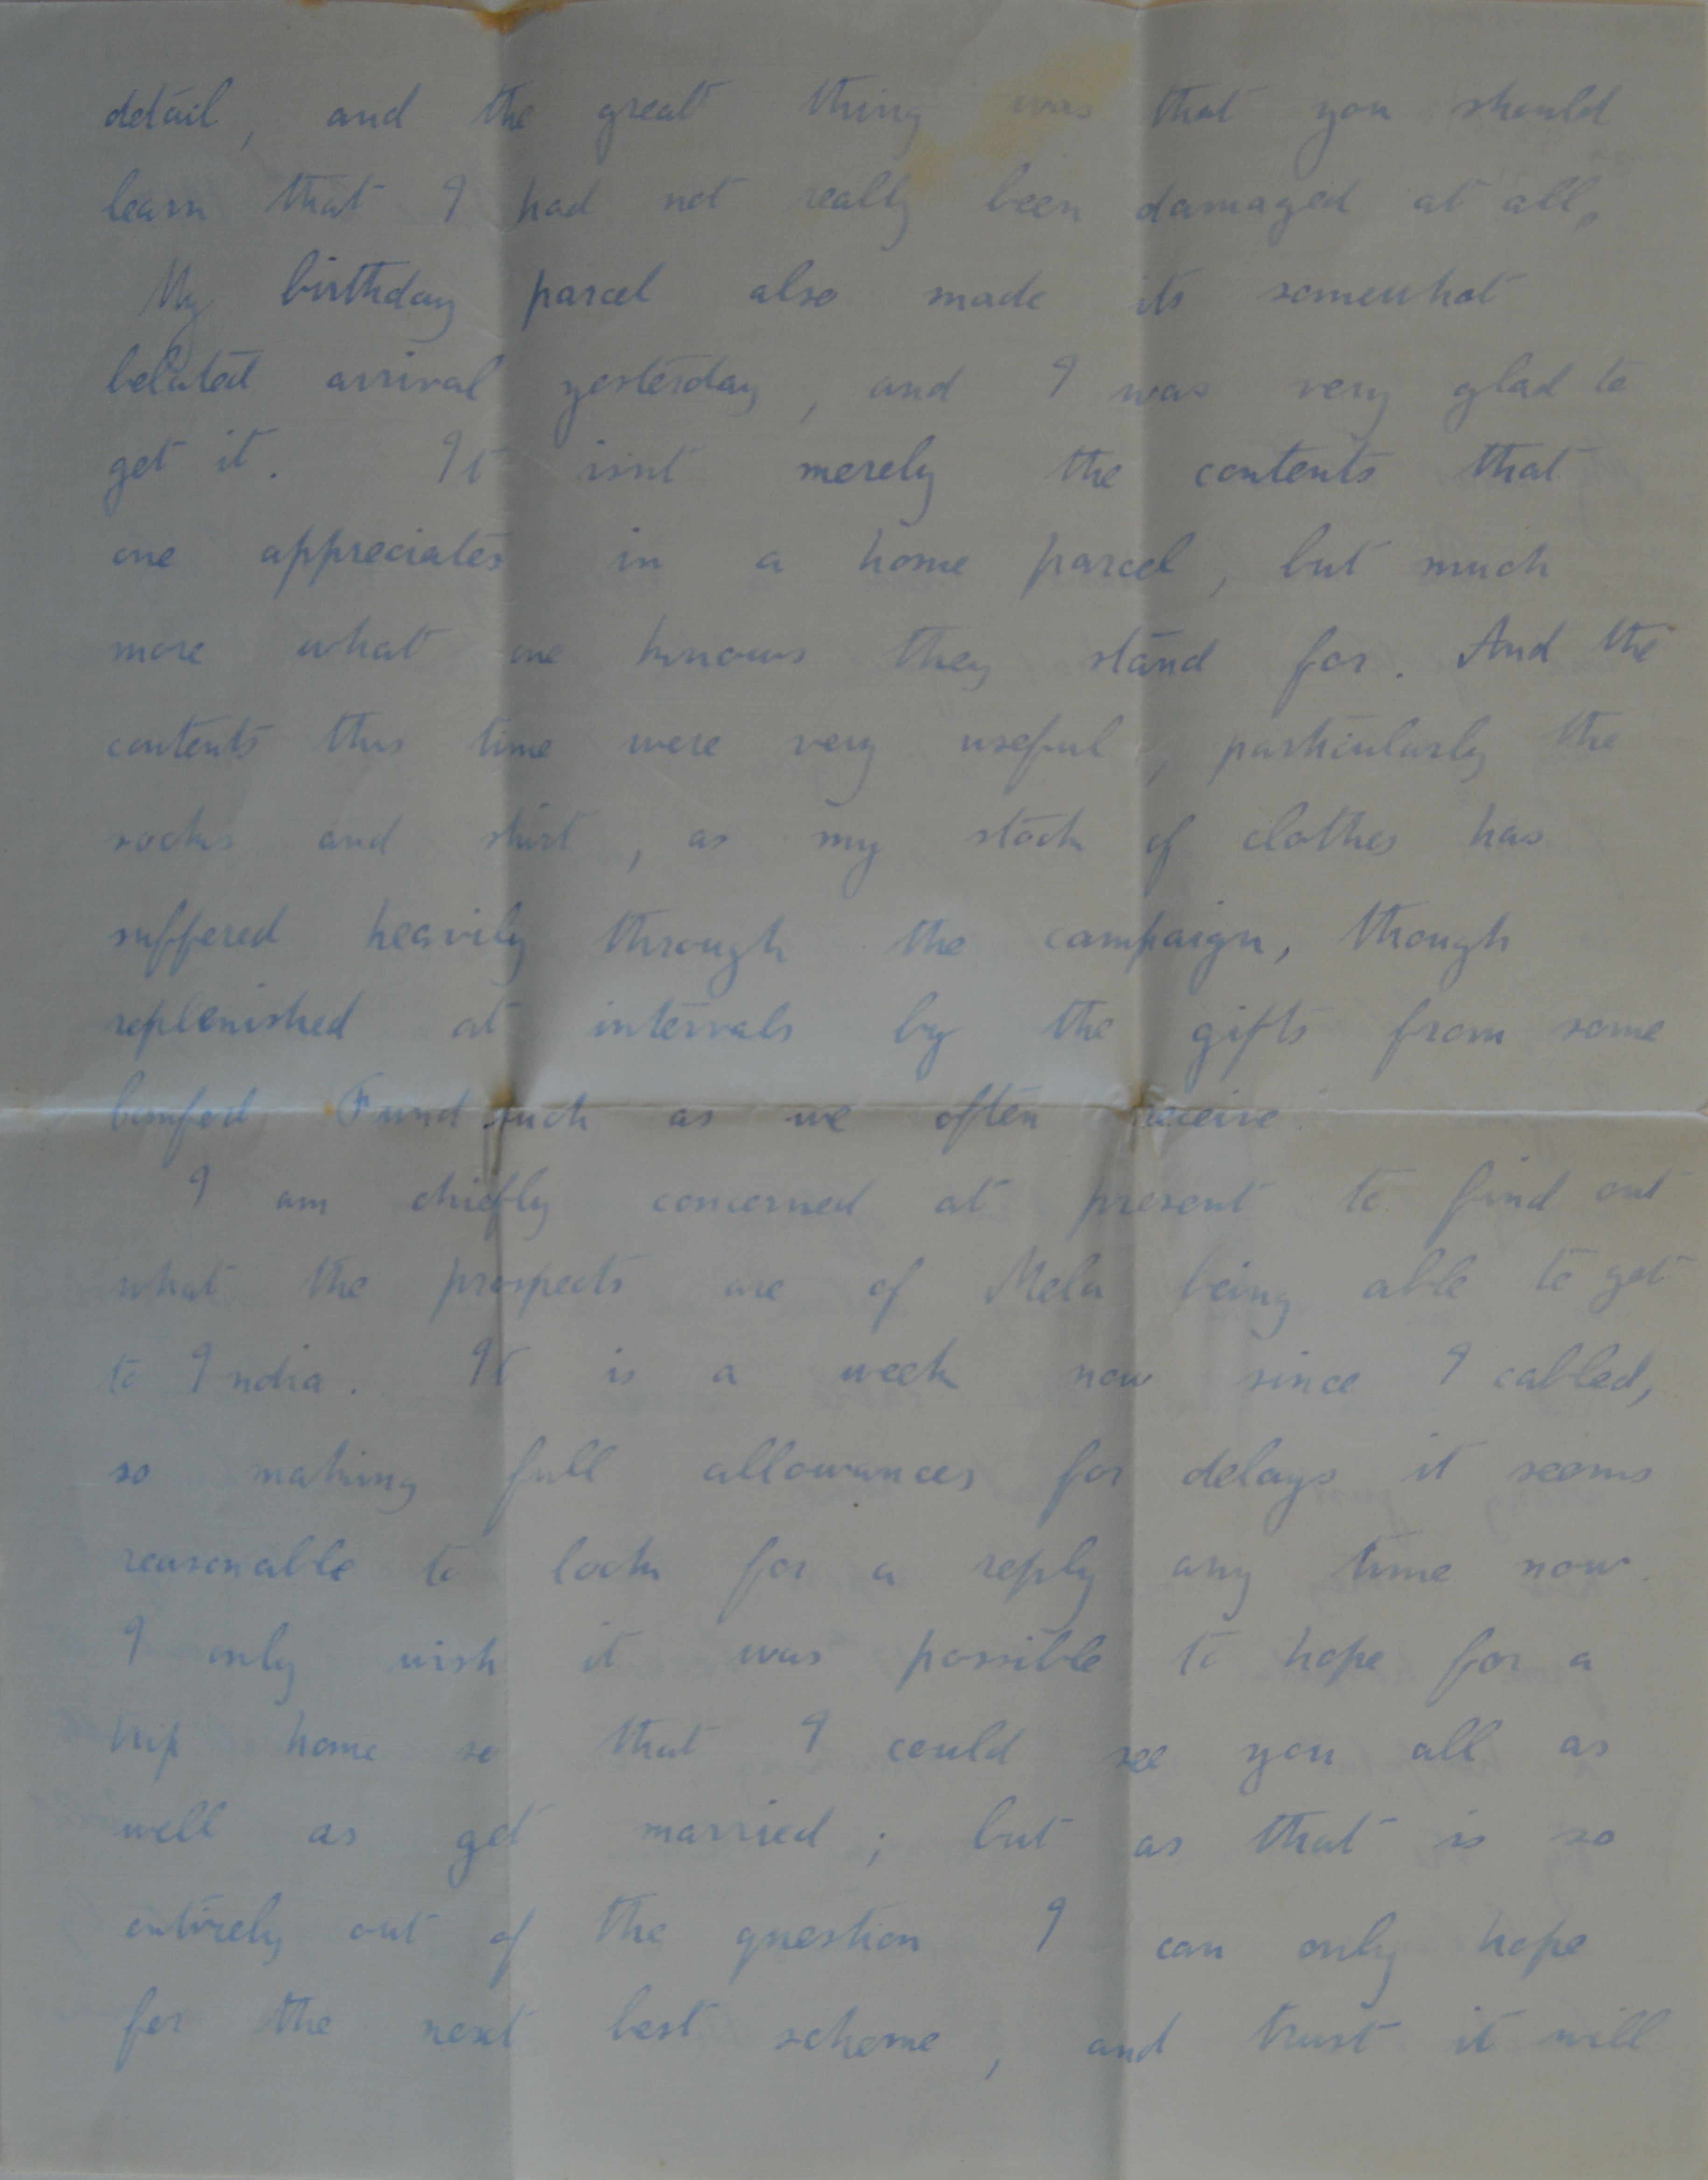 detail, and the great thing was that you should
learn that I had not really been damaged at all.
My birthday parcel also made its somewhat
belated arrival yesterday, and I was very glad to
get it. It isnt merely the contents that
one appreciates in a home parcel, but much
more what one knows they stand for. And the
contents this time were very useful, particularly the
socks and shirt, as my stock of clothes has
suffered heavily through the campaign, though
replenished at intervals by the gifts from some
Comfort Fund such as we often receive.
I am chiefly concerned at present to find out
what the prospects are of Mela being able to get
to India. It is a week now since I cabled,
so making full allowances for delays it seems
reasonable to look for a reply any time now.
I only wish it was possible to hope for a
trip home so that I could see you all as
well as get married; but as that is so
entirely out of the question I can only hope
for the next best scheme, and trust it will